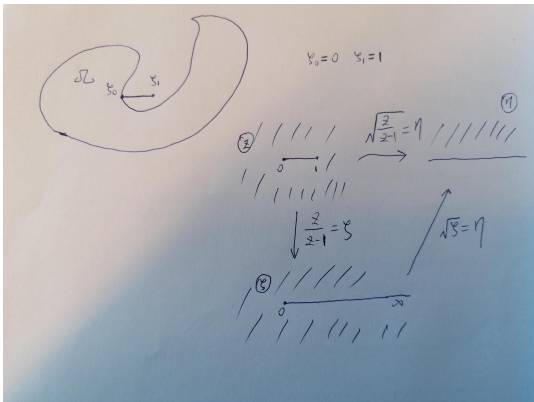 Ω ζ₀ ζ₁
ζ₀=0 ζ₁=1
z
√(z/(z-1)) = η
η
0 1
z/(z-1) = ζ
√ζ = η
ζ
0 ∞